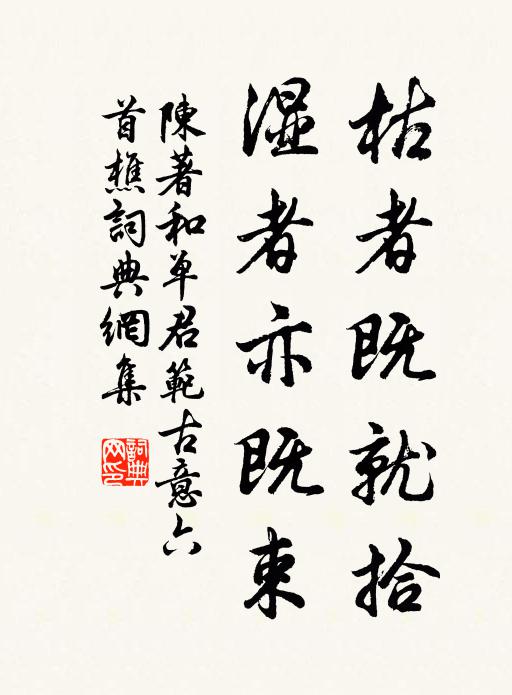 枯者既就拾
湿者亦既束
陳著和单君範古意六
首樵詞典網集
詞典
网印